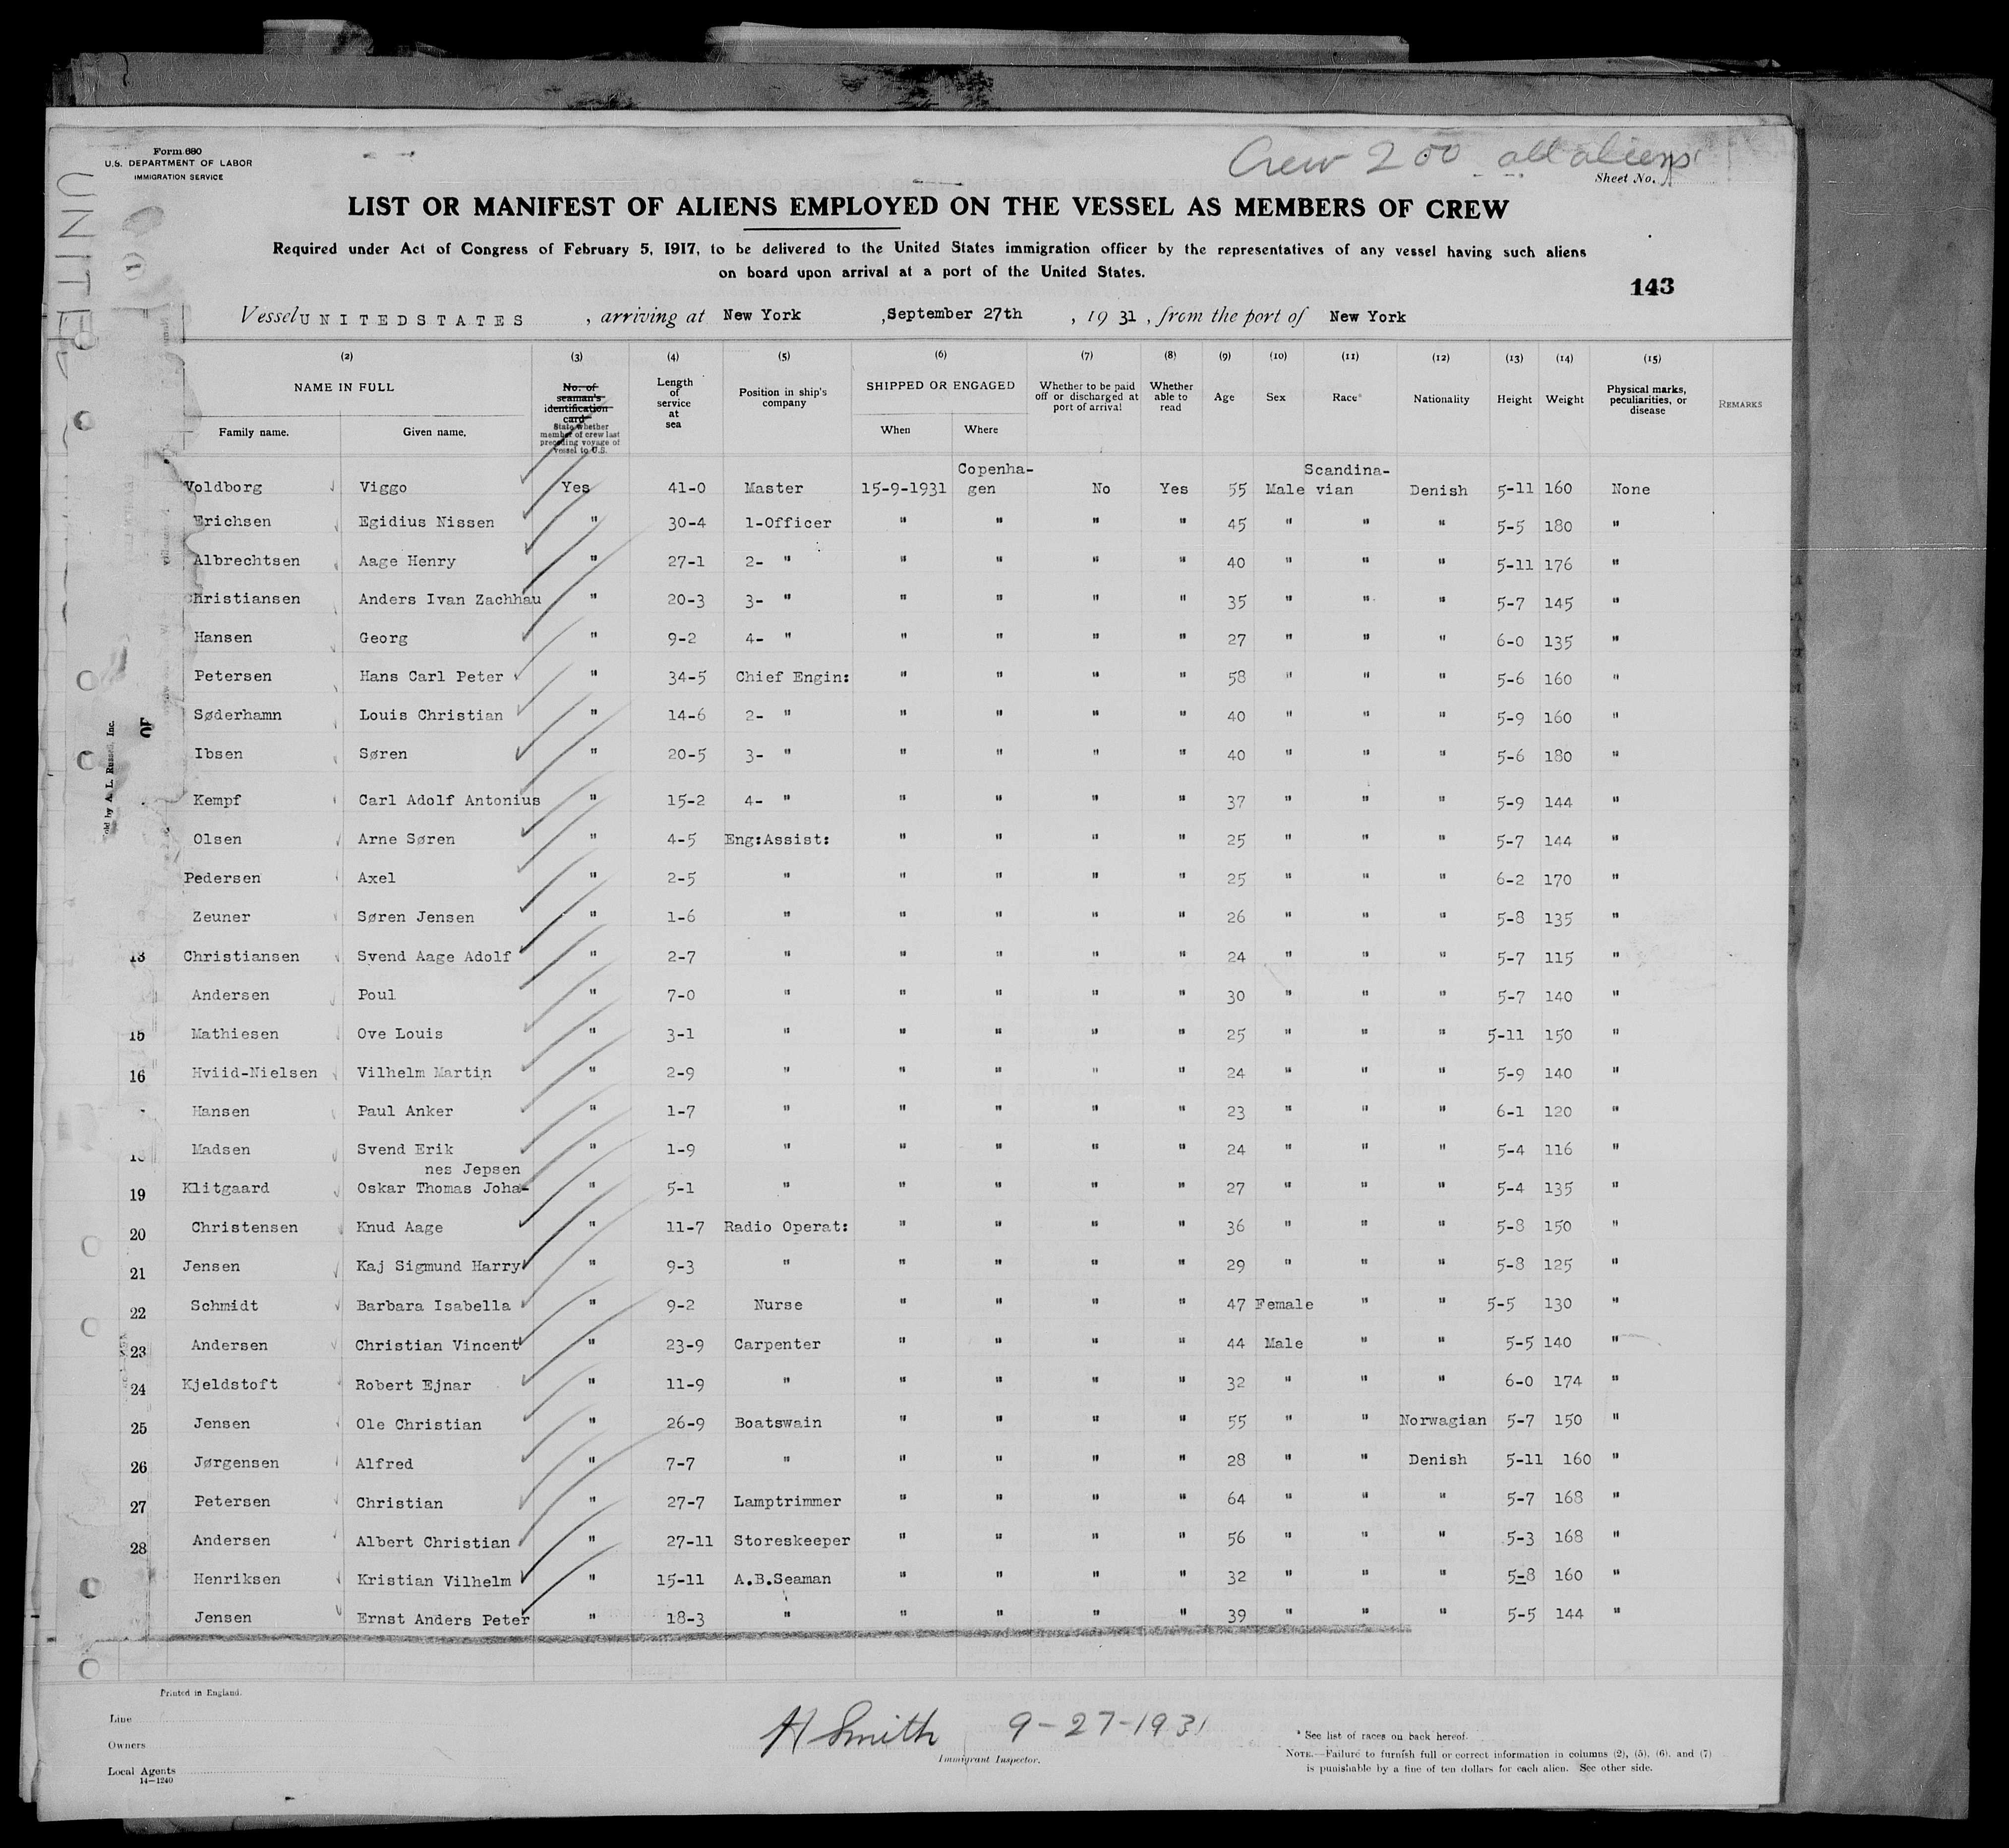 Crew 200 all aliens
Form 680
U.S. DEPARTMENT OF LABOR
IMMIGRATION SERVICE
Sheet No.
LIST OR MANIFEST OF ALIENS EMPLOYED ON THE VESSEL AS MEMBERS OF CREW
Required under Act of Congress of February 5, 1917, to be delivered to the United States immigration officer by the representatives of any vessel having such aliens
on board upon arrival at a port of the United States.
143
Vessel UNITEDSTATES, arriving at New York, September 27th, 1931, from the port of New York
(2) (3) (4) (5) (6) (7) (8) (9) (10) (11) (12) (13) (14) (15)
NAME IN FULL Family name. Given name. No. of seaman's identification card State whether member of crew last preceding voyage of vessel to U.S. Length of service at sea Position in ship's company SHIPPED OR ENGAGED When Where Whether to be paid off or discharged at port of arrival Whether able to read Age Sex Race* Nationality Height Weight Physical marks, peculiarities, or disease REMARKS
Voldborg Viggo Yes 41-0 Master 15-9-1931 Copenha-gen No Yes 55 Male Scandina-vian Denish 5-11 160 None
Erichsen Egidius Nissen " 30-4 1-Officer " " " " 45 " " " 5-5 180 "
Albrechtsen Aage Henry " 27-1 2- " " " " " 40 " " " 5-11 176 "
Christiansen Anders Ivan Zachhau " 20-3 3- " " " " " 35 " " " 5-7 145 "
Hansen Georg " 9-2 4- " " " " " 27 " " " 6-0 135 "
Petersen Hans Carl Peter " 34-5 Chief Engin: " " " " 58 " " " 5-6 160 "
Søderhamn Louis Christian " 14-6 2- " " " " " 40 " " " 5-9 160 "
Ibsen Søren " 20-5 3- " " " " " 40 " " " 5-6 180 "
Kempf Carl Adolf Antonius " 15-2 4- " " " " " 37 " " " 5-9 144 "
Olsen Arne Søren " 4-5 Eng:Assist: " " " " 25 " " " 5-7 144 "
Pedersen Axel " 2-5 " " " " " 25 " " " 6-2 170 "
Zeuner Søren Jensen " 1-6 " " " " " 26 " " " 5-8 135 "
13 Christiansen Svend Aage Adolf " 2-7 " " " " " 24 " " " 5-7 115 "
Andersen Poul " 7-0 " " " " " 30 " " " 5-7 140 "
15 Mathiesen Ove Louis " 3-1 " " " " " 25 " " " 5-11 150 "
16 Hviid-Nielsen Vilhelm Martin " 2-9 " " " " " 24 " " " 5-9 140 "
Hansen Paul Anker " 1-7 " " " " " 23 " " " 6-1 120 "
Madsen Svend Erik " 1-9 " " " " " 24 " " " 5-4 116 "
nes Jepsen
19 Klitgaard Oskar Thomas Joha- " 5-1 " " " " " 27 " " " 5-4 135 "
20 Christensen Knud Aage " 11-7 Radio Operat: " " " " 36 " " " 5-8 150 "
21 Jensen Kaj Sigmund Harry " 9-3 " " " " " 29 " " " 5-8 125 "
22 Schmidt Barbara Isabella " 9-2 Nurse " " " " 47 Female " " 5-5 130 "
23 Andersen Christian Vincent " 23-9 Carpenter " " " " 44 Male " " 5-5 140 "
24 Kjeldstoft Robert Ejnar " 11-9 " " " " " 32 " " " 6-0 174 "
25 Jensen Ole Christian " 26-9 Boatswain " " " " 55 " " Norwagian 5-7 150 "
26 Jørgensen Alfred " 7-7 " " " " " 28 " " Denish 5-11 160 "
27 Petersen Christian " 27-7 Lamptrimmer " " " " 64 " " " 5-7 168 "
28 Andersen Albert Christian " 27-11 Storeskeeper " " " " 56 " " " 5-3 168 "
Henriksen Kristian Vilhelm " 15-11 A.B.Seaman " " " " 32 " " " 5-8 160 "
Jensen Ernst Anders Peter " 18-3 " " " " " 39 " " " 5-5 144 "
Printed in England.
Line
Owners
Local Agents
14-1240
H Smith 9-27-1931
Immigrant Inspector.
* See list of races on back hereof.
NOTE.—Failure to furnish full or correct information in columns (2), (5), (6), and (7)
is punishable by a fine of ten dollars for each alien. See other side.
OF
old by A. L. Russell, Inc.
UNITE